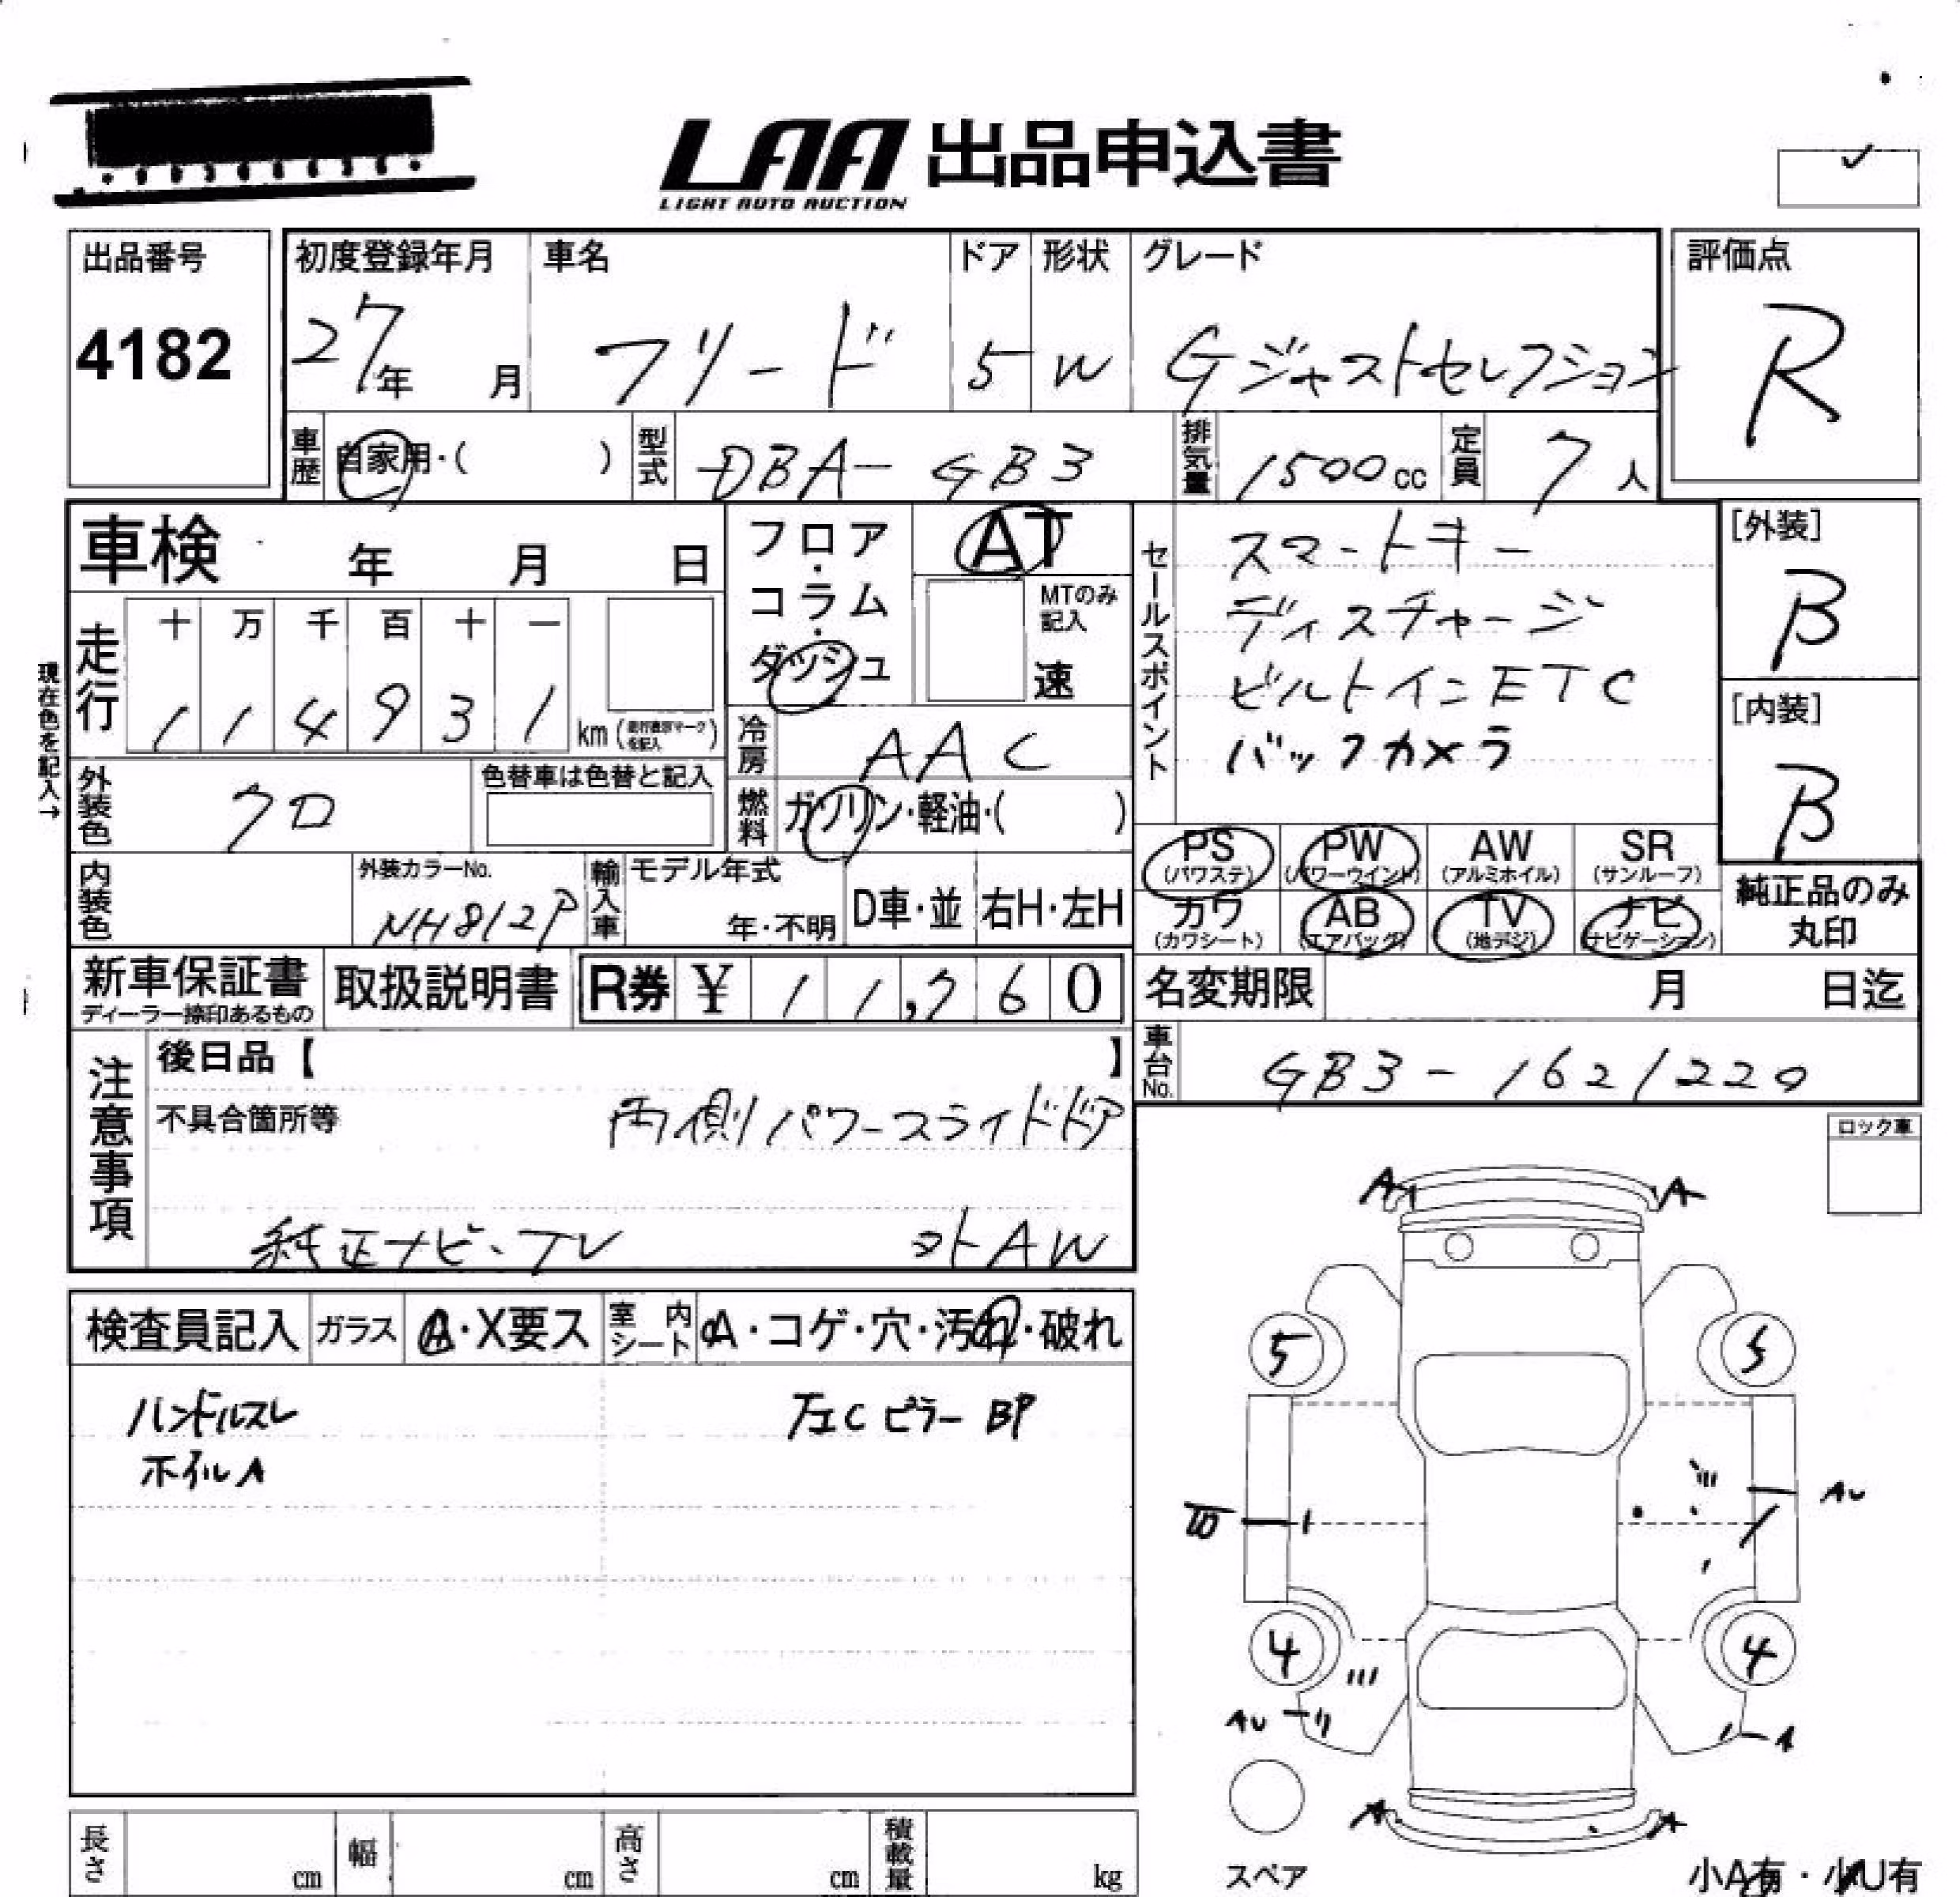 LAA 出品申込書
LIGHT AUTO AUCTION
出品番号
4182
初度登録年月
27年 月
車名
フリード
ドア
5
形状
W
グレード
Gジャストセレクション
評価点
R
車歴 自家用・( )
型式 DBA-GB3
排気量 1500cc
定員 7人
車検 年 月 日
フロア・コラム・ダッシュ
AT
MTのみ記入
速
セールスポイント
スマートキー
ディスチャージ
ビルトインETC
バックカメラ
[外装]
B
[内装]
B
現在色を記入→
走行
十 万 千 百 十 一
1 1 4 9 3 1 km (走行表示マークを記入)
冷房 AAC
外装色 クロ
色替車は色替と記入
燃料 ガソリン・軽油・( )
PS (パワステ)
PW (パワーウインド)
AW (アルミホイル)
SR (サンルーフ)
内装色
外装カラーNo.
NH812P
輸入車
モデル年式
年・不明
D車・並
右H・左H
カワ (カワシート)
AB (エアバッグ)
TV (地デジ)
ナビ (ナビゲーション)
純正品のみ丸印
新車保証書
ディーラー捺印あるもの
取扱説明書
R券 ¥ 11,760
名変期限 月 日迄
注意事項
後日品【 】
不具合箇所等
両側パワースライドドア
純正ナビ・TV 外AW
車台No. GB3-1621220
ロック車
検査員記入
ガラス A・X要ス
室内シート A・コゲ・穴・汚れ・破れ
ハンドルスレ
ホイルA
左Cピラー BP
A A
5 5
AU
4 4
AU A
A A
スペア
小A有・小U有
長さ cm
幅 cm
高さ cm
積載量 kg